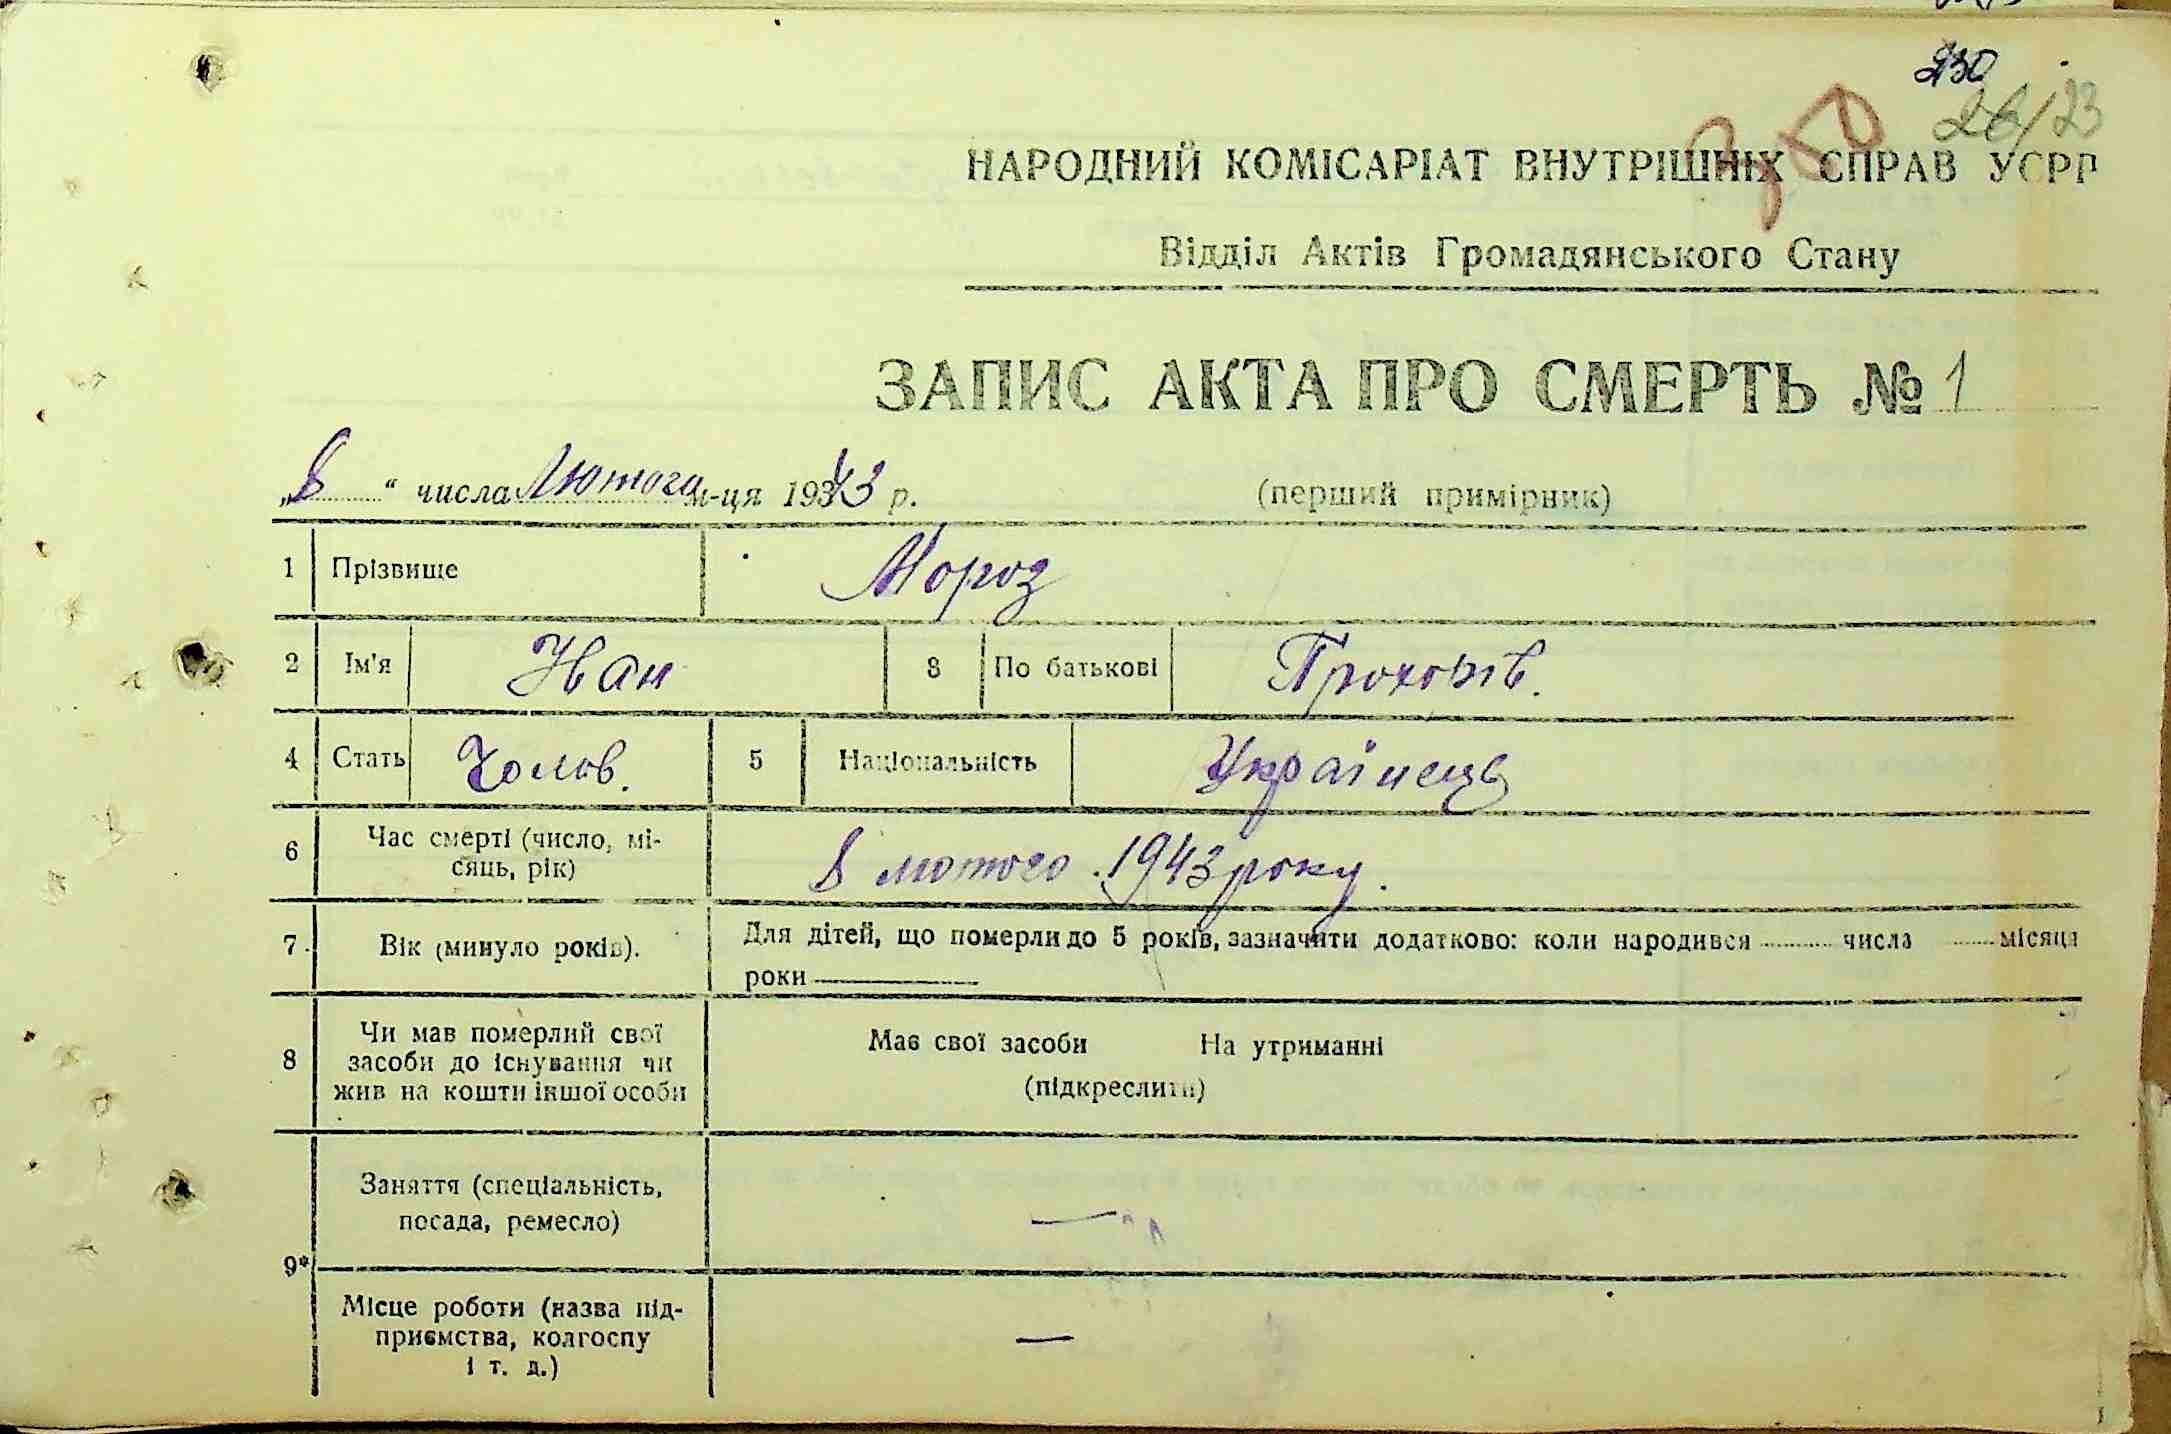 230
26/23
НАРОДНИЙ КОМІСАРІАТ ВНУТРІШНІХ СПРАВ УСРР
Відділ Актів Громадянського Стану
ЗАПИС АКТА ПРО СМЕРТЬ № 1
„8“ числа Лютого м-ця 1943 р. (перший примірник)
1 Прізвище Мороз
2 Ім'я Иван 3 По батькові Прохорів.
4 Стать Чолов. 5 Національність Українець
6 Час смерті (число, мі-
сяць, рік) 8 лютого 1943 року.
7. Вік (минуло років). Для дітей, що померли до 5 років, зазначити додатково: коли народився числа місяця
роки
8 Чи мав померлий свої
засоби до існування чи
жив на кошти іншої особи
Має свої засоби На утриманні
(підкреслити)
9* Заняття (спеціальність,
посада, ремесло) —
Місце роботи (назва під-
приємства, колгоспу
і т. д.) —